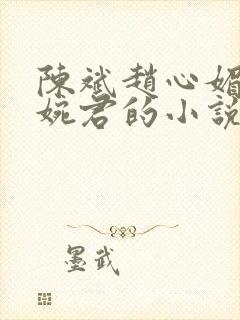 陳斌趙心媚
婉君的小說
墨武